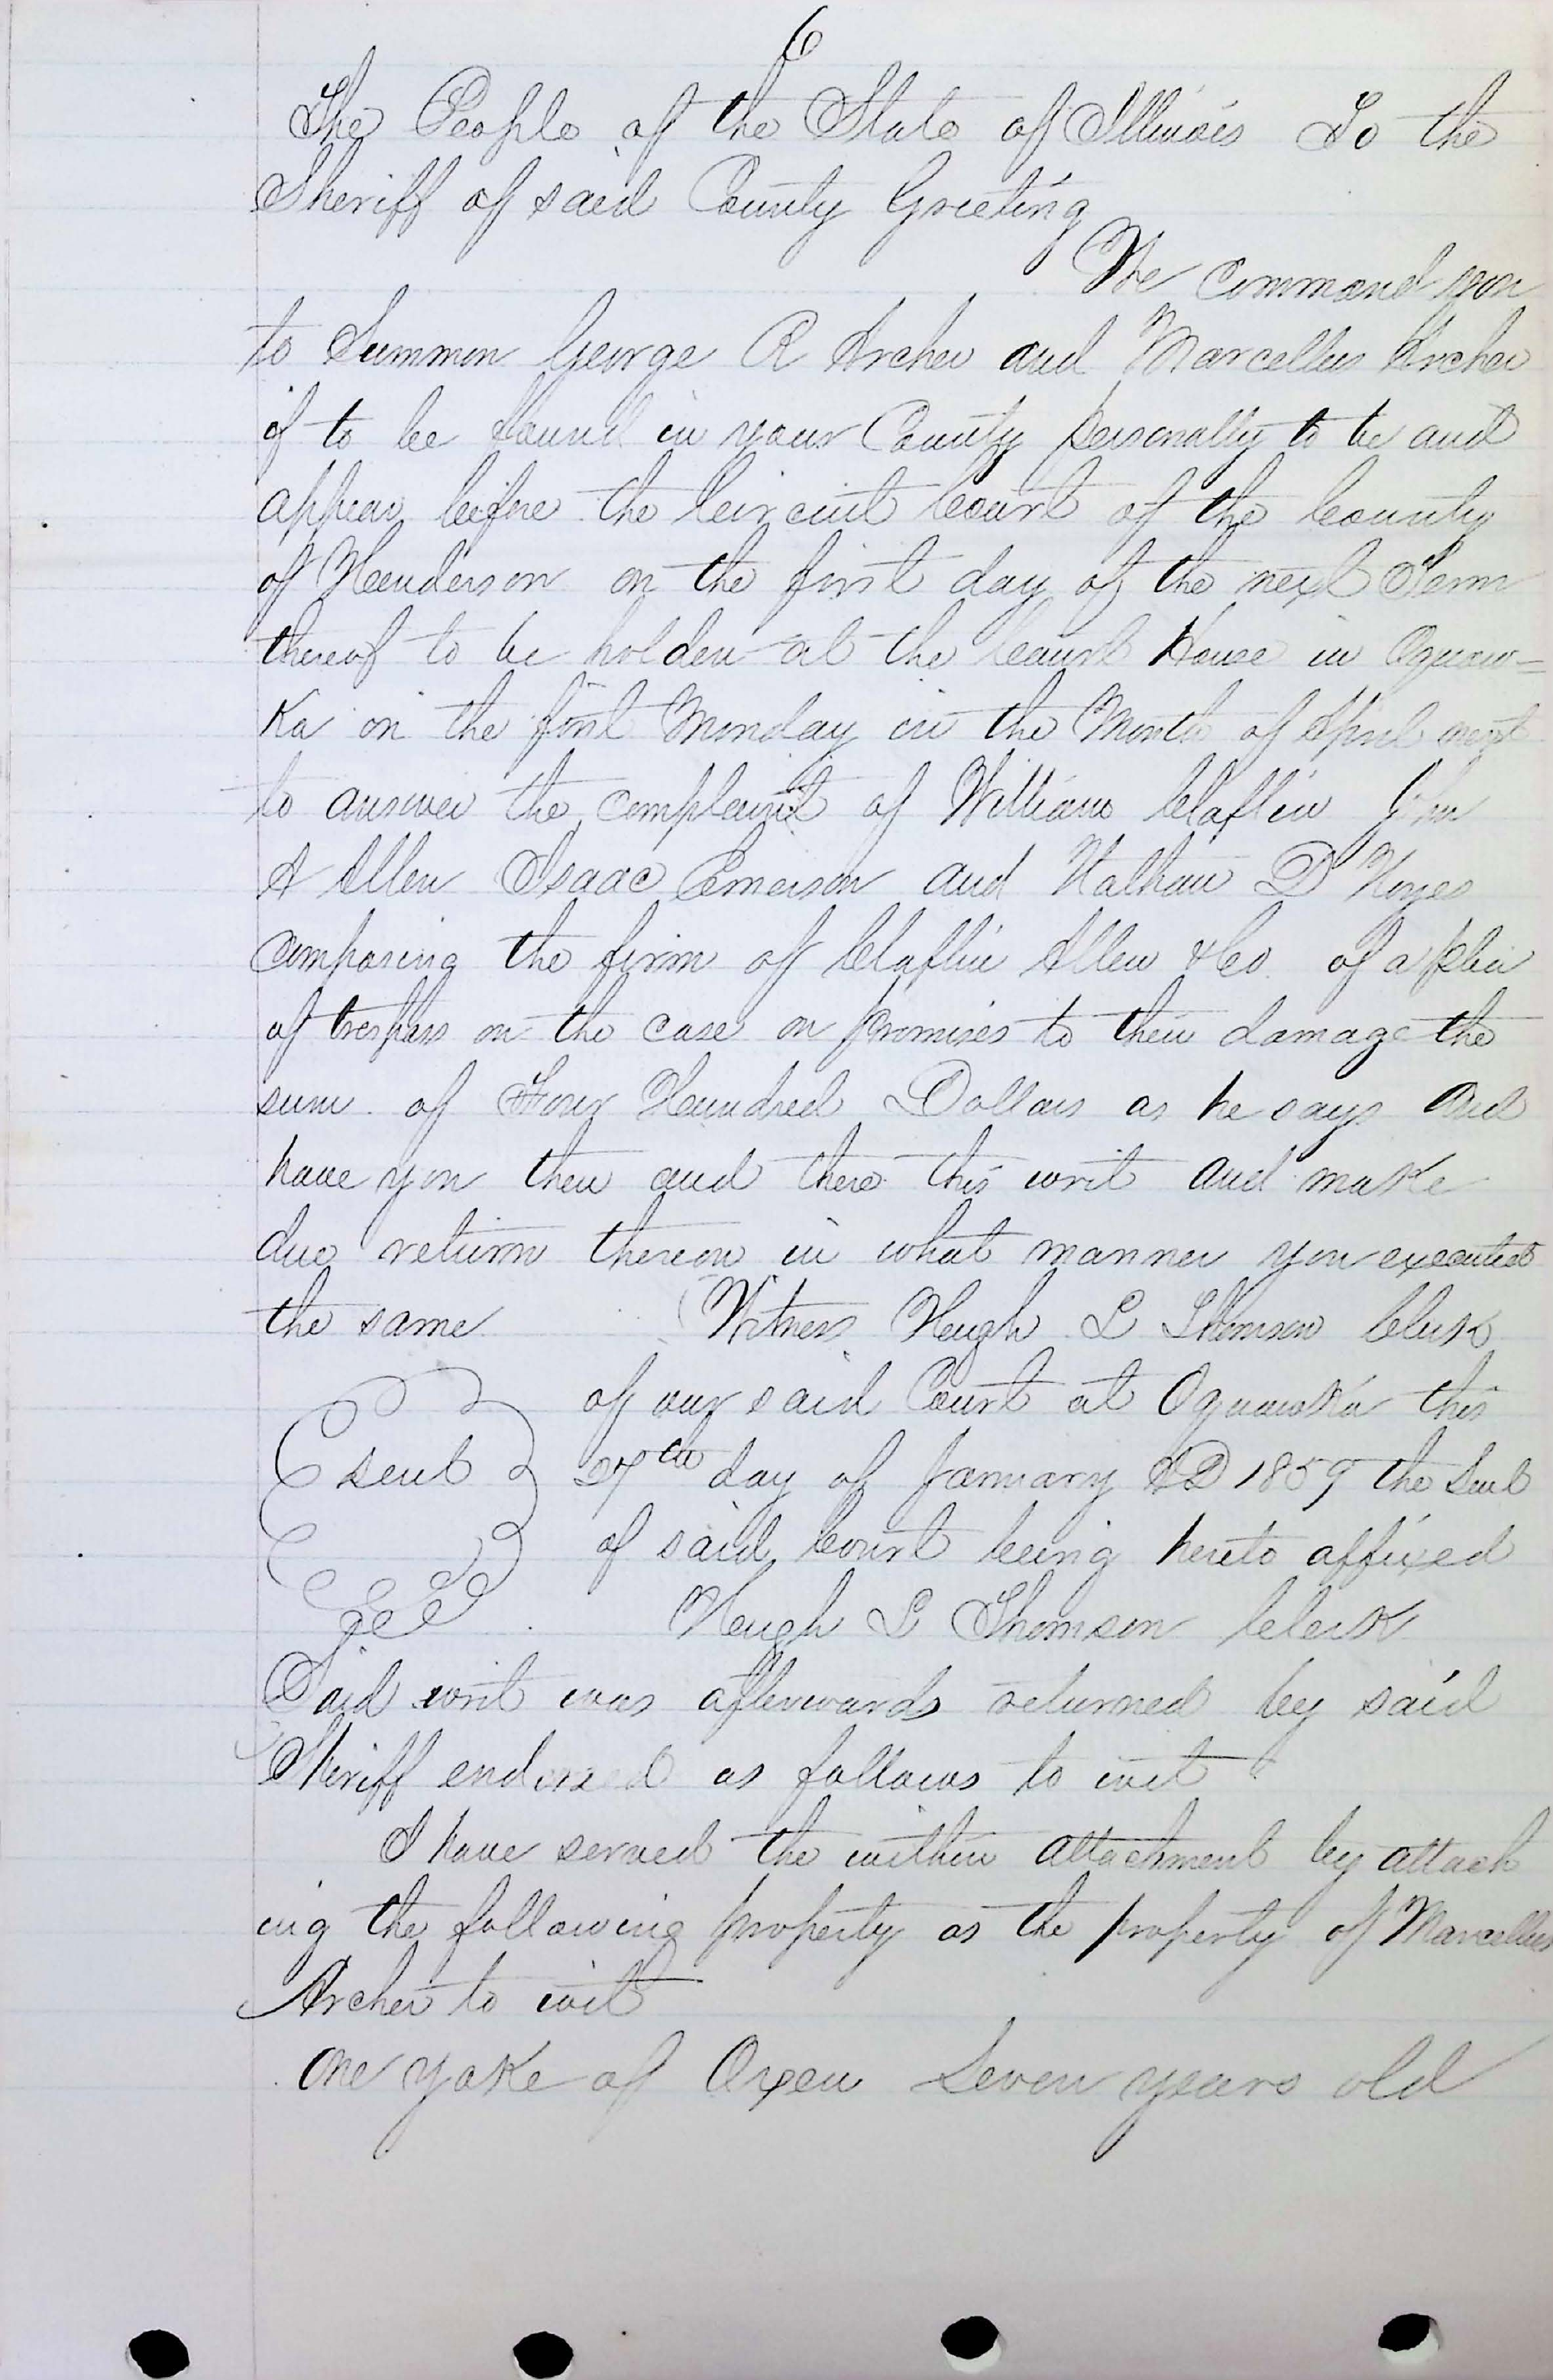 6
The People of the State of Illinois To the
Sheriff of said County Greeting
We Command you
to Summon George R Archer and Marcellus Archer
if to be found in your County personally to be and
appear before the Circuit Court of the County
of Henderson on the first day of the next Term
thereof to be holden at the Court House in Oquaw=
Ka on the first Monday in the Month of April next
to answer the complaint of William Claflin John
A Allen Isaac Emerson and Nathan D Noyes
composing the firm of Claflin Allen & Co. of a plea
of trespass on the case on promises to their damage the
sum of Four Hundred Dollars as he says and
have you then and there this writ and make
due return thereon in what manner you executed
the same Witness Hugh L Thomson Clerk
of our said Court at Oquawka this
seal 27th day of January AD 1859 the Seal
of said Court being hereto affixed
Hugh L Thomson Clerk
Said writ was afterwards returned by said
Sheriff endorsed as follows to wit
I have served the within attachment by attach
ing the following property as the property of Marcellus
Archer to wit
One yoke of Oxen Seven years old